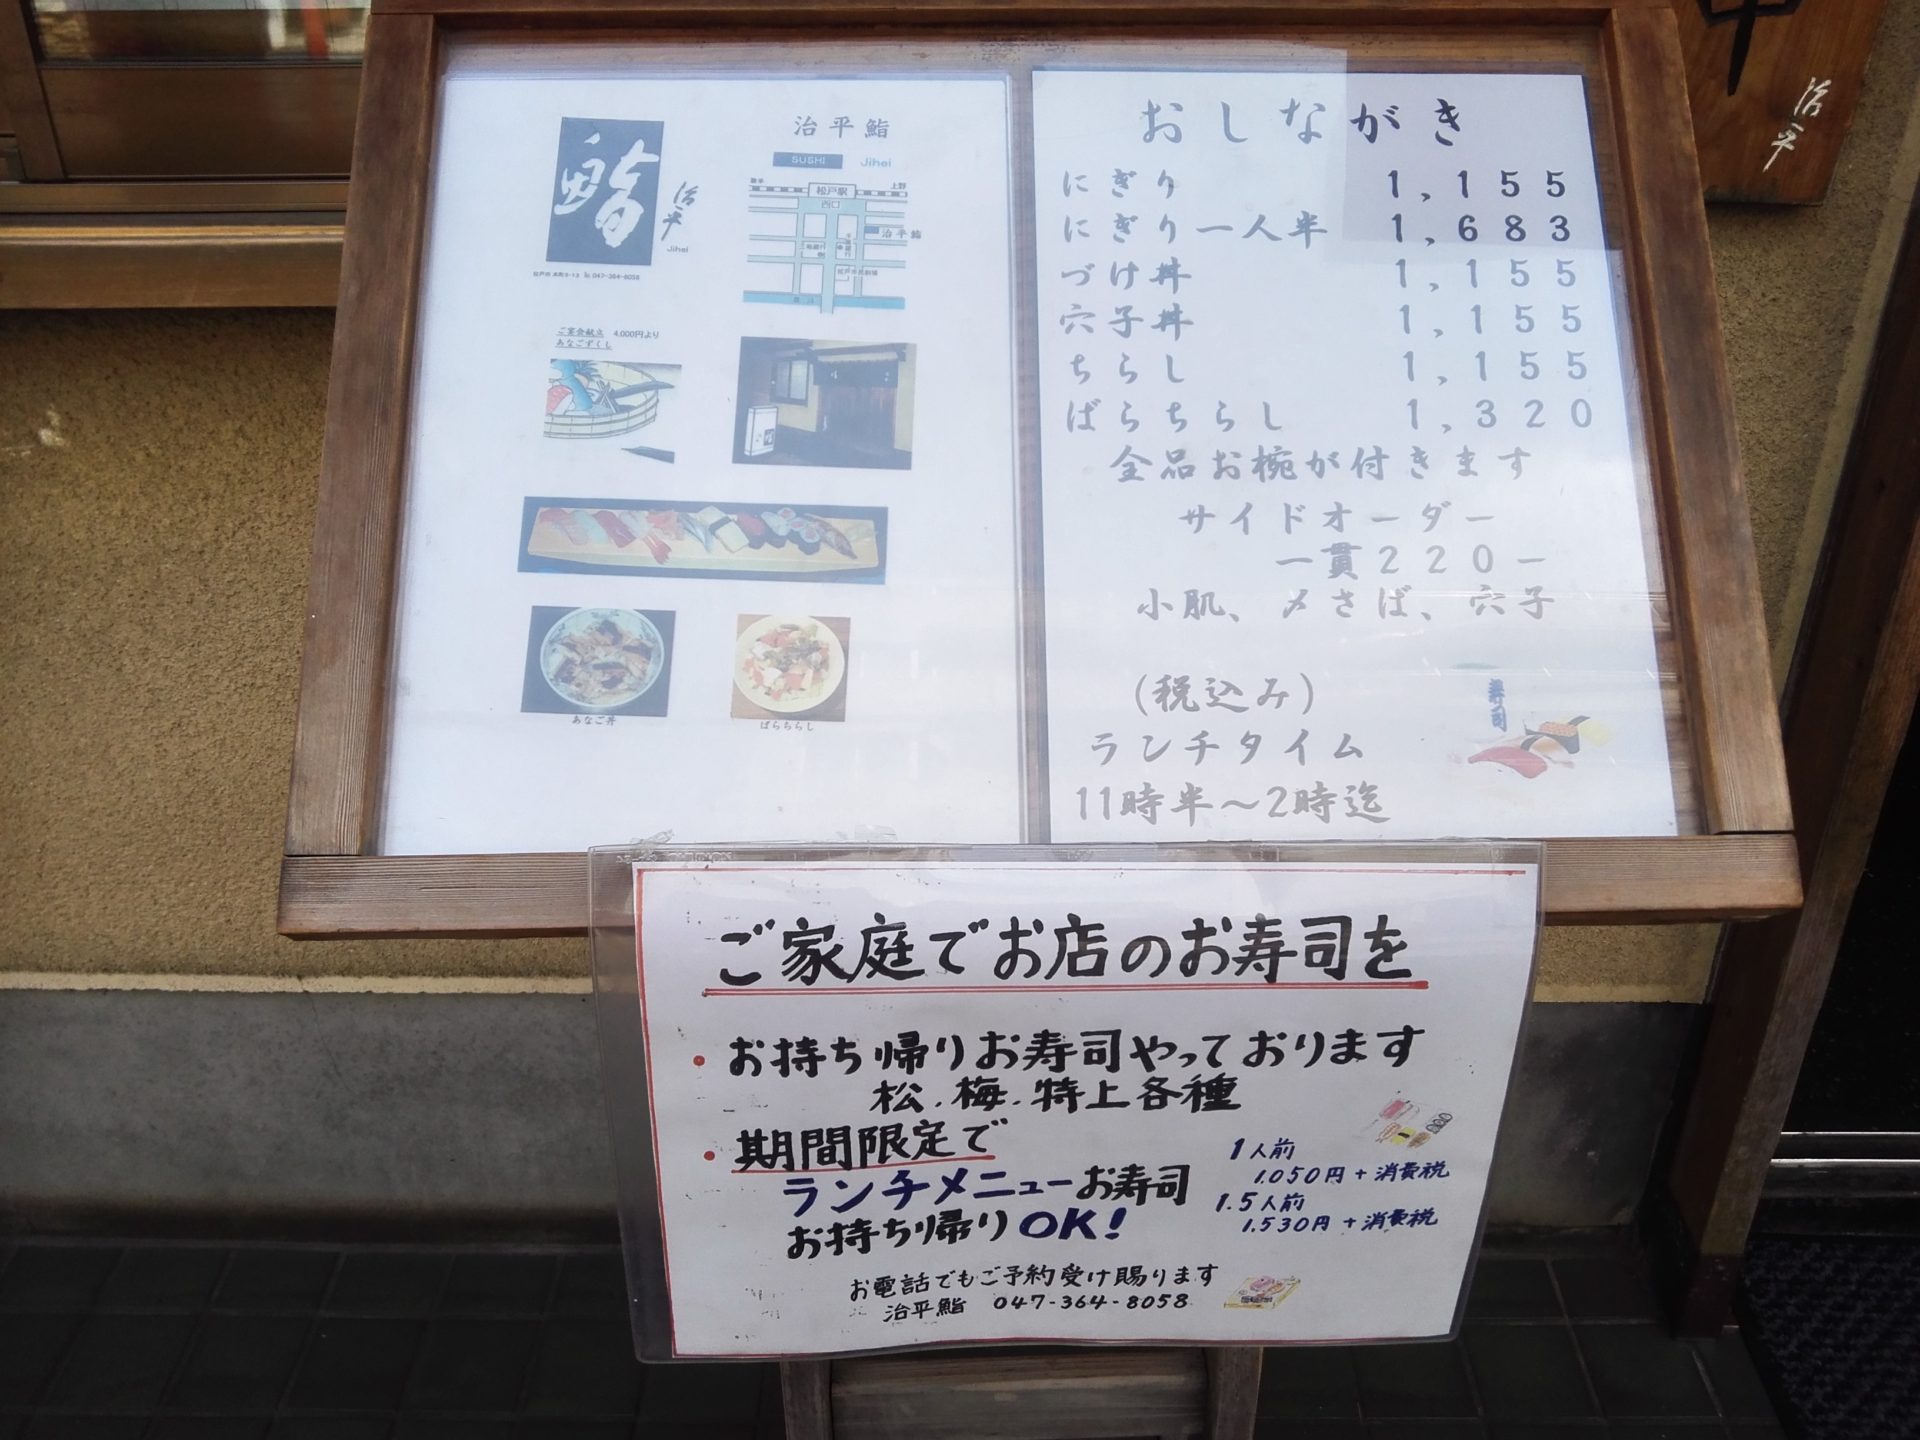 鮨
治平
Jihei
松戸市 本町5-13 ℡ 047-364-8058
治平鮨
SUSHI Jihei
上野
松戸駅
西口
治平鮨
ご宴会献立 4,000円より
あなごずくし
あなご丼
ばらちらし
おしながき
にぎり 1,155
にぎり一人半 1,683
づけ丼 1,155
穴子丼 1,155
ちらし 1,155
ばらちらし 1,320
全品お椀が付きます
サイドオーダー
一貫220-
小肌、〆さば、穴子
(税込み)
ランチタイム
11時半〜2時迄
寿司
治平
ご家庭でお店のお寿司を
・お持ち帰りお寿司やっております
松.梅.特上各種
・期間限定で
ランチメニューお寿司
お持ち帰りOK!
1人前
1.050円+消費税
1.5人前
1.530円+消費税
お電話でもご予約受け賜ります
治平鮨 047-364-8058